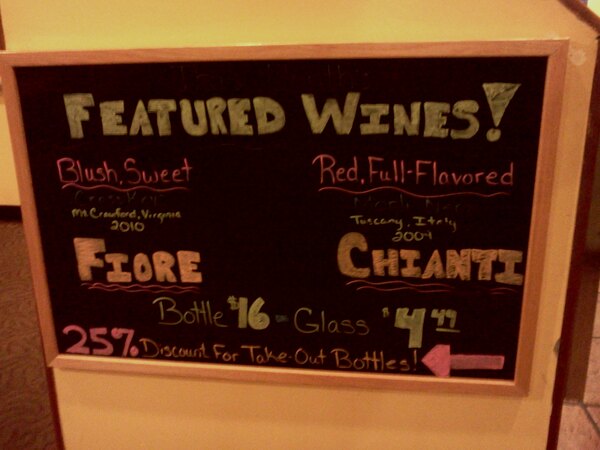 FEATURED WINES!
Blush, Sweet
Mt. Crawford, Virginia
2010
FIORE
Red, Full-Flavored
Tuscany, Italy
CHIANTI
Bottle $16 - Glass $4.49
25% Discount For Take-Out Bottles!